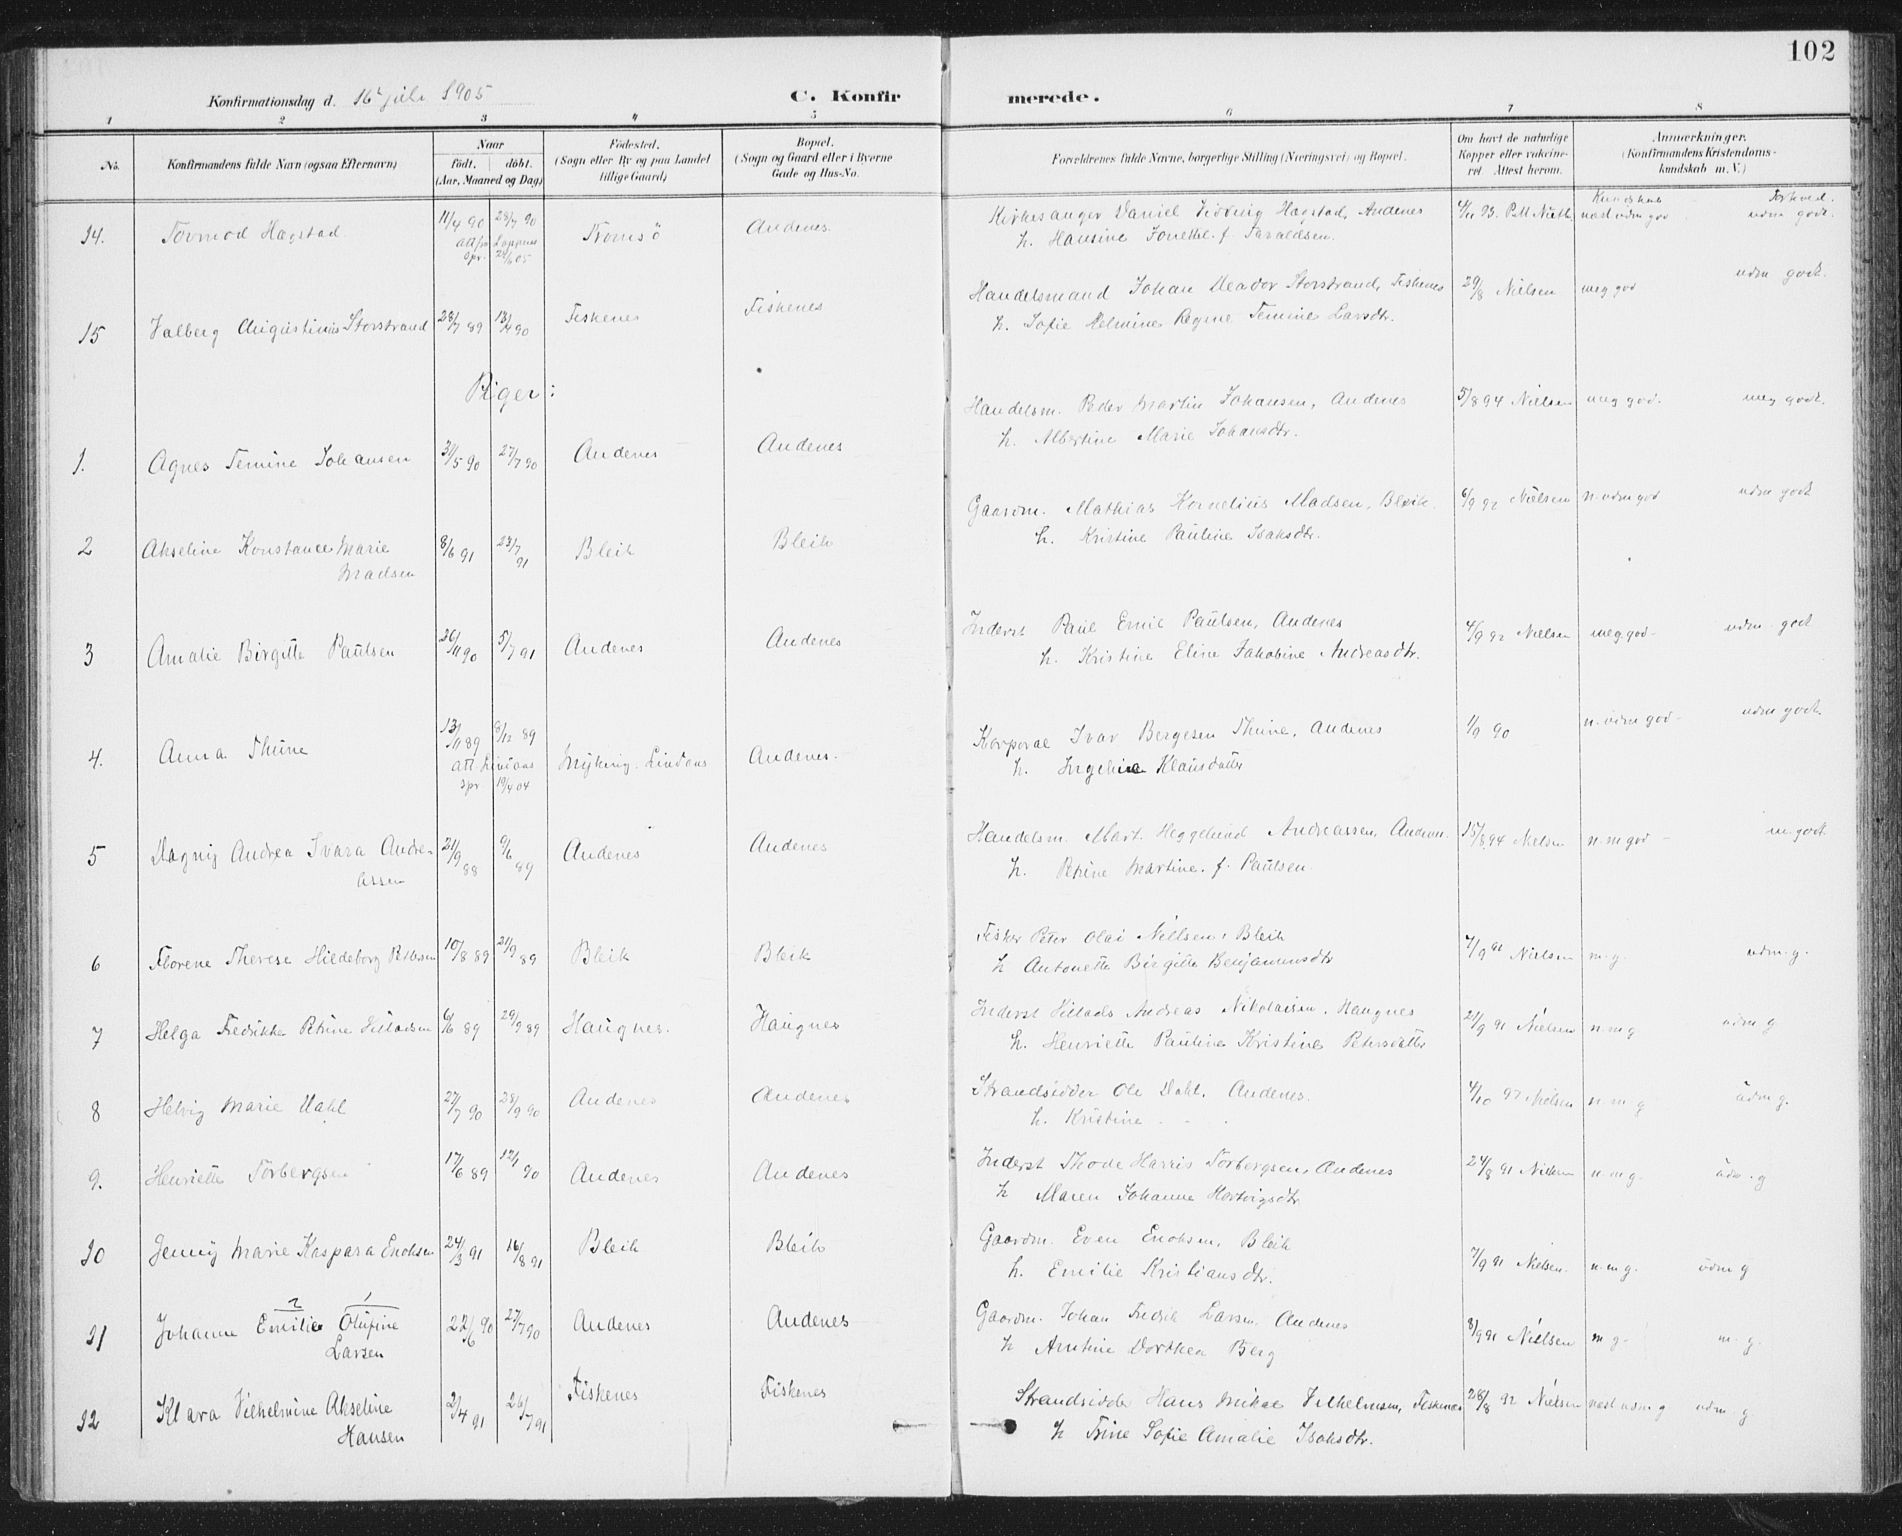 102
Konfirmationsdag d. 16 juli 1905 C. Konfirmerede.
1 2 3 4 5 6 7 8
No. Konfirmandens fulde Navn (ogsaa Efternavn) Naar født. døbt. (Aar, Maaned og Dag) Fødested. (Sogn eller By og paa Landet tillige Gaard) Bopæl. (Sogn og Gaard eller i Byerne Gade og Hus-No. Forældrenes fulde Navne, borgerlige Stilling (Næringsvei) og Bopæl. Om havt de naturlige Kopper eller vakcineret. Attest herom. Anmærkninger. (Konfirmandens Kristendomskundskab m. V.)
Kundskab Forhold.
14. Tormod Hagstad 11/4 90 28/7 90 Tromsö Andenes. Kirkesanger Daniel Hagstad, Andenes 4/11 93. næst udm god udm godt.
h. Hansine
15 Valberg Augustinus Storstrand 28/7 89 13/4 90 Fiskenes Fiskenes Handelsmand Johan Meador Storstrand, Fiskenes 29/8 Nielsen meg god udm godt.
h. Sofie Helmine Regine Temine Larsdtr.
Piger:
1. Agnes Temine Johansen 31/5 90 27/7 90 Andenes Andenes Handelsm. Peder Martin Johansen, Andenes 5/8 94 Nielsen meg god. meg godt.
h. Albertine Marie Johansdtr.
2 Akseline Konstance Marie Madsen 8/6 91 23/7 91 Bleik Bleik Gaardm. Mathias Kornelius Madsen, Bleik. 6/9 92 Nielsen n. udm god udm godt
h. Kristine Pauline Isaksdtr.
3 Amalie Birgitte Paulsen 26/11 90 5/7 91 Andenes Andenes Inderst Paul Emil Paulsen, Andenes 4/9 92 Nielsen meg god- udm godt
h. Kristine Eline Jakobine Andreasdtr.
4. Anna Thune 13/11 89 8/12 89 Myking. Lindaas Andenes. Korporal Ivar Bergesen Thune, Andenes 1/9 90 n. udm god- udm godt.
att. Lindaas spr 19/4 04 h. Klausdatter
5 Dagny Andrea Ivara Andreassen 21/9 88 9/6 89 Andenes Andenes Handelsm. Mart. Heggelund Andreassen, Andenes. 15/8 94 Nielsen n. m god- m. godt
h. Petrine Martine. f. Paulsen.
6 Florene Therese Hildeborg 10/8 89 21/9 89 Bleik Bleik Fisker Peter Olai Nillsen, Bleik 7/9 91 Nielsen m. g. udm. g.
h Antonette Birgitte Benjaminsdtr
7 Helga Fredrikke Petrine Villadsen 6/6 89 29/9 89 Haugnes. Haugnes Inderst Villads Andreas Nikolaisen, Haugnes 21/9 91 Nielsen n. m g udm g
h. Henriette Pauline Kristine Petersdatter
8 Helvig Marie Dahl 27/7 90 28/9 90 Andenes Andenes Strandsidder Ole Dahl, Andenes. 4/10 97 Nielsen n. m g udm g.
h. Kristine - - .
9. Henriette Torbergsen 17/6 89 12/1 90 Andenes Andenes Inderst Thode Harris Torbergsen, Andenes 24/8 91 Nielsen n. m g. udm. g
h Maren Johanna Hartvigsdtr
10 Jenny Marie Kaspara Enoksen 24/3 91 16/8 91 Bleik Bleik Gaardm. Even Enoksen, Bleik 7/9 91 Nielsen. n. m g. udm g
h. Emilie Kristiansdtr.
11 Johanne Emilie Olufine Larsen 22/6 90 27/7 90 Andenes Andenes Gaardm. Johan Fredrik Larsen, Andenes 8/9 91 Nielsen m g- m. g.
h Arntine Dorthea Berg
12 Klara Vilhelmine Akseline Hansen 2/4 91 26/7 91 Fiskenes Fiskenes Strandsidder Hans Mikal Vilhelmsen, Fiskenes 28/8 92 Nielsen næst udm g udm g
h Trine Sofie Amalie Isaksdtr.